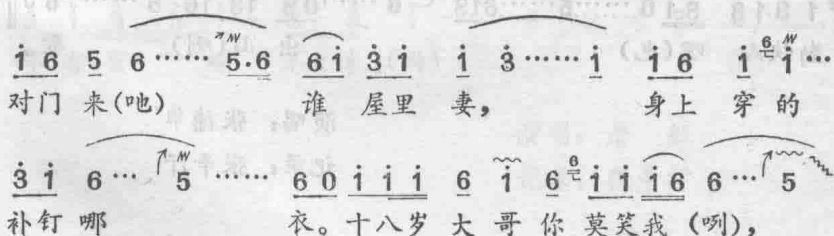 i 6 5 6…… 5.6 6 i 3 i i 3…… i i 6 i 6 i…
对门 来(吔) 谁 屋里 妻， 身上 穿 的
3 i 6… 5 …… 6 0 i i i 6 i 6 6 i i i 6 6… 5
补钉 哪 衣。十八岁 大 哥 你 莫笑我 (咧)，